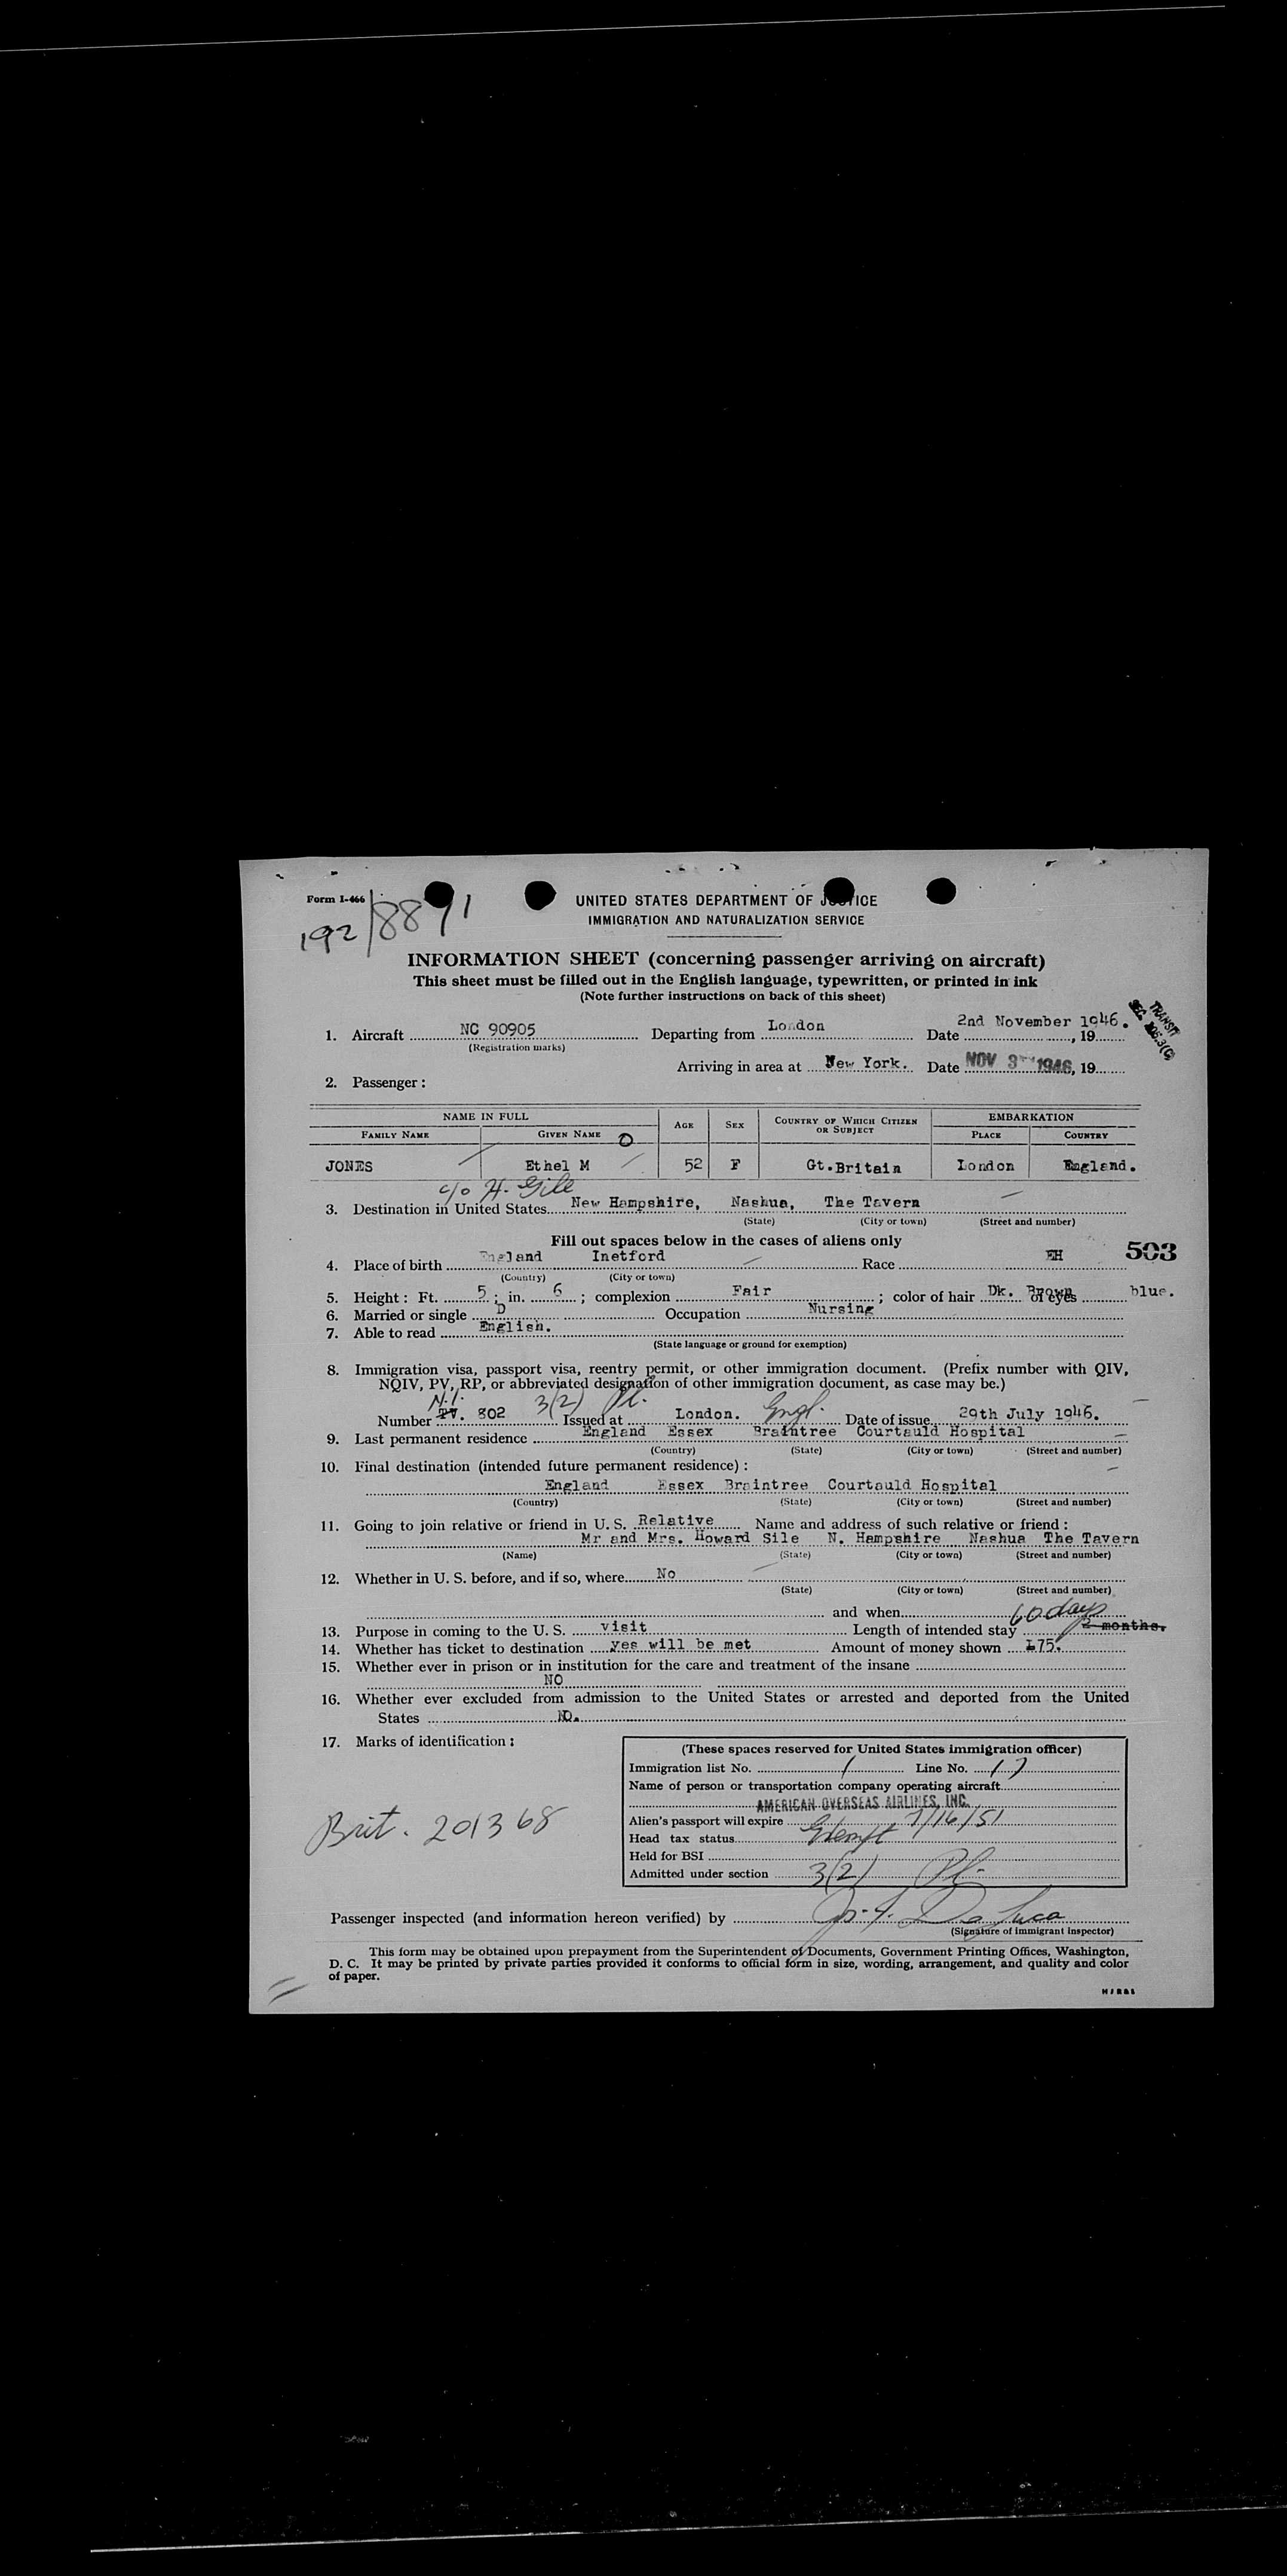 Form I-466
192/8891
UNITED STATES DEPARTMENT OF JUSTICE
IMMIGRATION AND NATURALIZATION SERVICE
INFORMATION SHEET (concerning passenger arriving on aircraft)
This sheet must be filled out in the English language, typewritten, or printed in ink
(Note further instructions on back of this sheet)
TRANSIT
1. Aircraft NC 90905 Departing from London Date 2nd November 1946. , 19
(Registration marks)
Arriving in area at New York. Date NOV 3 1946, 19
2. Passenger:
NAME IN FULL AGE SEX COUNTRY OF WHICH CITIZEN OR SUBJECT EMBARKATION
FAMILY NAME GIVEN NAME PLACE COUNTRY
JONES Ethel M 52 F Gt.Britain London England.
c/o H. Gile
3. Destination in United States New Hampshire, Nashua, The Tavern
(State) (City or town) (Street and number)
Fill out spaces below in the cases of aliens only
503
4. Place of birth England Inetford Race EH
(Country) (City or town)
5. Height: Ft. 5 ; in. 6 ; complexion Fair ; color of hair Dk. Brown of eyes blue.
6. Married or single D Occupation Nursing
7. Able to read English.
(State language or ground for exemption)
8. Immigration visa, passport visa, reentry permit, or other immigration document. (Prefix number with QIV,
NQIV, PV, RP, or abbreviated designation of other immigration document, as case may be.)
3(2) Pl.
Number 802 Issued at London. Engl. Date of issue 29th July 1946.
9. Last permanent residence England Essex Braintree Courtauld Hospital
(Country) (State) (City or town) (Street and number)
10. Final destination (intended future permanent residence):
England Essex Braintree Courtauld Hospital
(Country) (State) (City or town) (Street and number)
11. Going to join relative or friend in U. S. Relative Name and address of such relative or friend:
Mr and Mrs. Howard Sile N. Hampshire Nashua The Tavern
(Name) (State) (City or town) (Street and number)
12. Whether in U. S. before, and if so, where No
(State) (City or town) (Street and number)
and when
60 days
13. Purpose in coming to the U. S. visit Length of intended stay 2 months.
14. Whether has ticket to destination yes will be met Amount of money shown £75.
15. Whether ever in prison or in institution for the care and treatment of the insane
NO
16. Whether ever excluded from admission to the United States or arrested and deported from the United
States NO.
17. Marks of identification:
Brit. 201368
(These spaces reserved for United States immigration officer)
Immigration list No. 1 Line No. 17
Name of person or transportation company operating aircraft
AMERICAN OVERSEAS AIRLINES, INC.
Alien's passport will expire 7/16/51
Head tax status Exempt
Held for BSI
Admitted under section 3(2) Pl.
Passenger inspected (and information hereon verified) by De Luca
(Signature of immigrant inspector)
This form may be obtained upon prepayment from the Superintendent of Documents, Government Printing Offices, Washington,
D. C. It may be printed by private parties provided it conforms to official form in size, wording, arrangement, and quality and color
of paper.